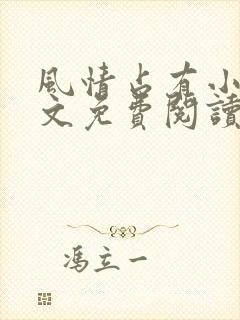 風情占有小
文免費閱讀
馮立一